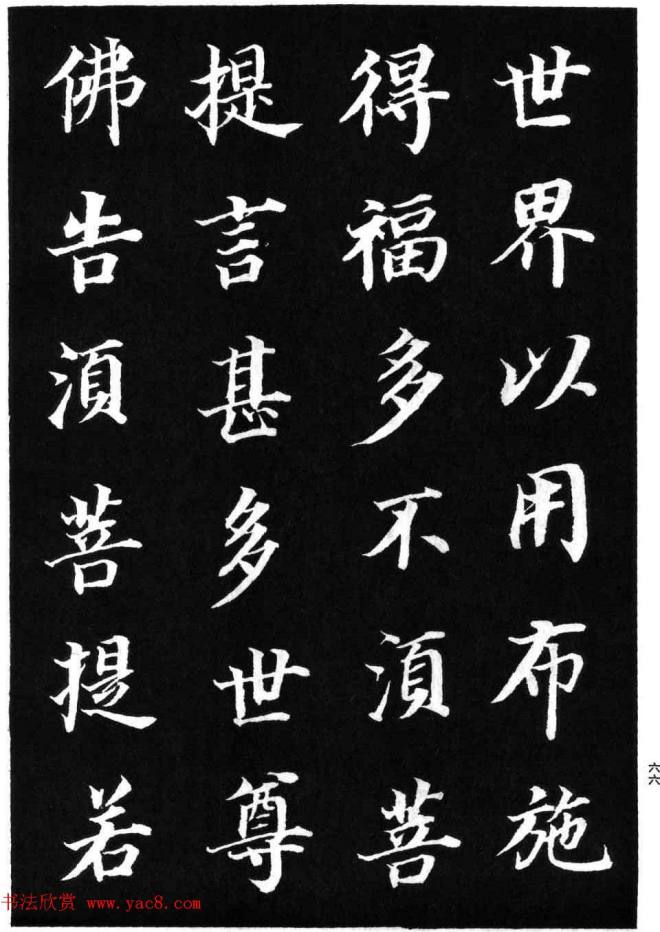 世界以用布施
得福多不湏菩
提言甚多世尊
佛告湏菩提若
六六
书法欣赏 www.yac8.com